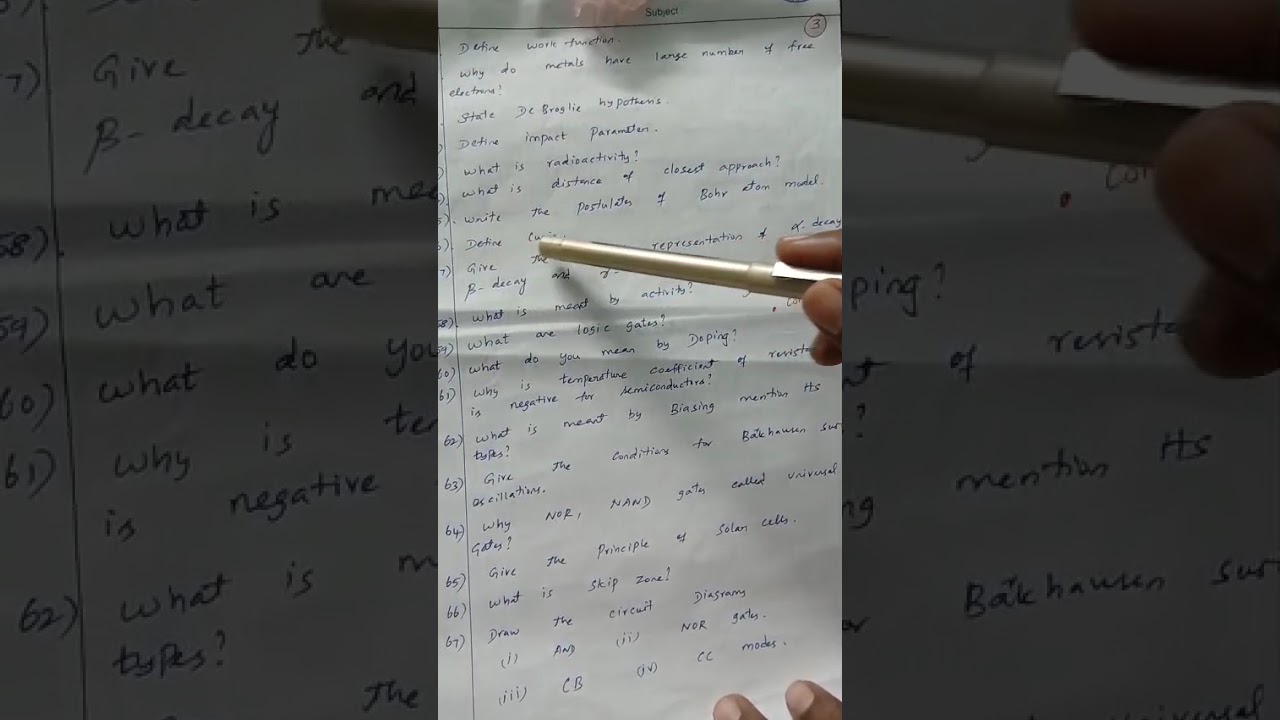 Subject
3
Define work function.
why do metals have large number of free
electrons?
State De Broglie hypothesis.
Define impact Parameter.
what is radioactivity?
what is distance of closest approach?
write the postulates of Bohr atom model.
Define
7) Give the representation of α-decay
β-decay and γ-
58). what is meant by activity?
59) what are logic gates?
60) what do you mean by Doping?
61) why is temperature coefficient of resista
is negative for semiconductors?
62) what is meant by Biasing mention its
types?
63) Give the conditions for Bakhausen sus
oscillations.
64) why NOR, NAND gates called universal
Gates?
65) Give the Principle of Solar cells.
66) what is skip zone?
67) Draw the circuit Diagrams
(i) AND (ii) NOR gates.
(iii) CB (iv) CC modes.